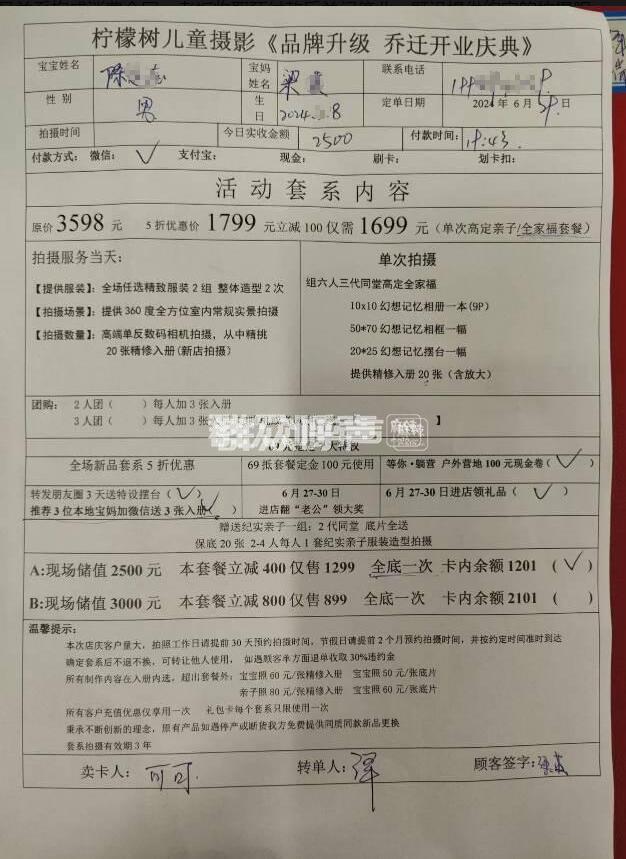 柠檬树儿童摄影《品牌升级 乔迁开业庆典》
宝宝姓名 陈 宝妈姓名 梁 联系电话
性别 男 生日 2024. 8 定单日期 2024年6月 日
拍摄时间 今日实收金额 2500 付款时间:
付款方式: 微信: ✓ 支付宝: 现金: 刷卡: 划卡扣:
活动套系内容
原价 3598 元 5 折优惠价 1799 元立减 100 仅需 1699 元 (单次高定亲子/全家福套餐)
拍摄服务当天:
【提供服装】: 全场任选精致服装 2 组 整体造型 2 次
【拍摄场景】: 提供 360 度全方位室内常规实景拍摄
【拍摄数量】: 高端单反数码相机拍摄, 从中精挑
20 张精修入册(新店拍摄)
单次拍摄
组六人三代同堂高定全家福
10x10 幻想记忆相册一本(9P)
50*70 幻想记忆相框一幅
20*25 幻想记忆摆台一幅
提供精修入册 20 张 (含放大)
团购: 2 人团 ( ) 每人加 3 张入册
3 人团 ( ) 每人加 3 张 】
群众呼声
全场新品套系 5 折优惠 69 抵套餐定金 100 元使用 等你·躺营 户外营地 100 元现金卷 ( ✓ )
转发朋友圈 3 天送特设摆台 ( ✓ )
推荐 3 位本地宝妈加微信送 3 张入册 ✓
6 月 27-30 日
进店翻“老公”领大奖
6 月 27-30 日进店领礼品 ( ✓ )
赠送纪实亲子一组: 2 代同堂 底片全送
保底 20 张 2-4 人每人 1 套纪实亲子服装造型拍摄
A:现场储值 2500 元 本套餐立减 400 仅售 1299 全底一次 卡内余额 1201 ( ✓ )
B:现场储值 3000 元 本套餐立减 800 仅售 899 全底一次 卡内余额 2101 ( )
温馨提示:
本次店庆客户量大, 拍照工作日请提前 30 天预约拍摄时间, 节假日请提前 2 个月预约拍摄时间, 并按约定时间准时到达
确定套系后不退不换, 可转让他人使用, 如遇顾客单方面退单收取 30%违约金
所有制作内容在入册内选, 超出套餐外: 宝宝照 60 元/张精修入册 宝宝照 50 元/张底片
亲子照 80 元/张精修入册 宝宝照 60 元/张底片
所有客户充值优惠仅享用一次 礼包卡每个套系只限使用一次
秉承不断创新的理念, 原有产品如遇停产或断货我方免费提供同质同款新品更换
套系拍摄有效期 3 年
卖卡人: 可可. 转单人: 顾客签字: